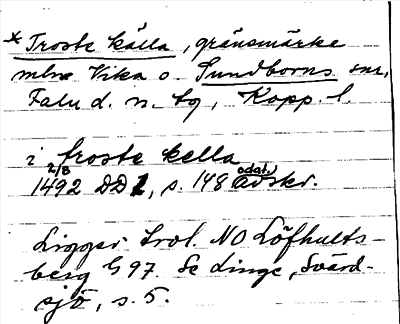 * Troste källa, gränsmärke
mln Vika o. Sundborns snr,
Falu d. n. tg, Kopp. l.
i troste kella
1492 2/3 DD 1, s. 148 odat. avskr.
Ligger trol. NO Löfhults-
berg G 97. Se Linge, Svärd-
sjö, s. 5.